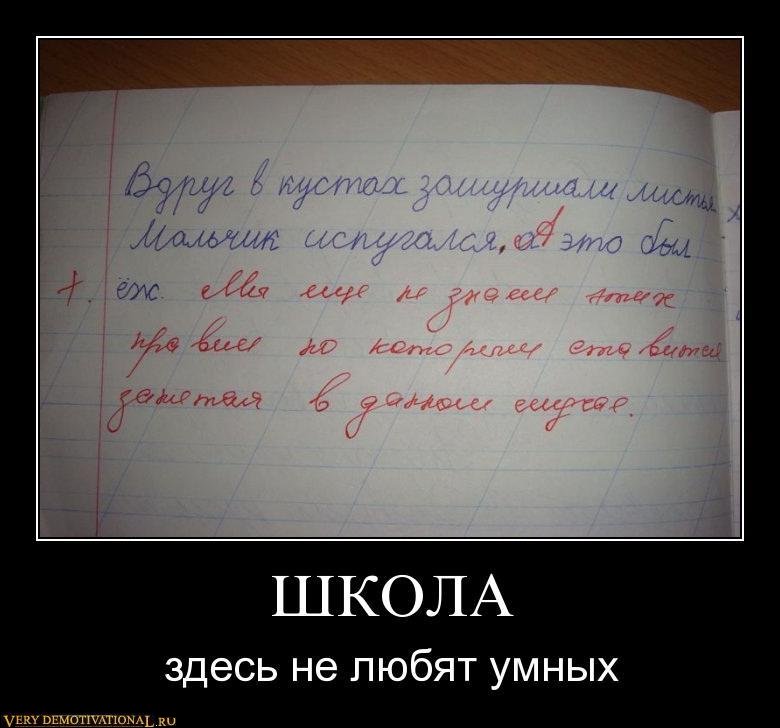 Вдруг в кустах зашуршали листья.
Мальчик испугался, а А это был
+. ёж. Мы еще не знаем этих
правил по которым ставится
запятая в данном случае.
ШКОЛА
здесь не любят умных
VERY DEMOTIVATIONAL.RU